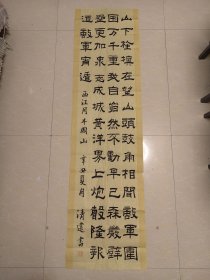 山下旌旗在望山頭鼓角相聞敵軍圍
困万千重我自巋然不動早已森嚴壁
壘更加衆志成城黄洋界上炮聲隆報
道敵軍宵遁 西江月井岡山 辛丑夏月
書